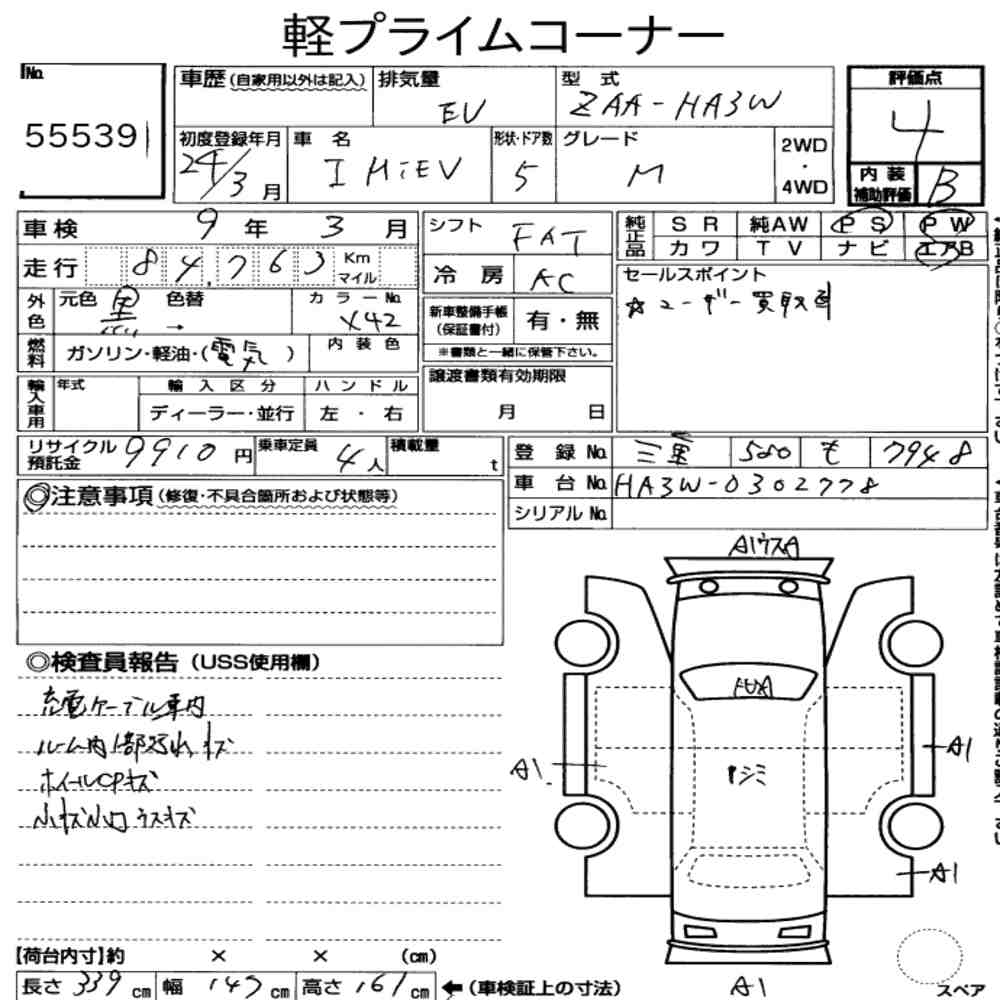 軽プライムコーナー
No. 55539
車歴(自家用以外は記入) 排気量 EV 型式 ZAA-HA3W 評価点 4
初度登録年月 24/3月 車名 I MiEV 形状・ドア数 5 グレード M 2WD・4WD 内装補助評価 B
車検 9年 3月
走行 84,763 Km マイル
外色 元色 黒 色替 → カラーNo. X42
燃料 ガソリン・軽油・(電気) 内装色
輸入車用 年式 輸入区分 ハンドル
ディーラー・並行 左・右
シフト FAT
冷房 AC
新車整備手帳(保証書付) 有・無
※書類と一緒に保管下さい。
譲渡書類有効期限
月 日
純正品 SR 純AW PS PW
カワ TV ナビ エアB
セールスポイント
☆ユーザー買取車
リサイクル預託金 9910円 乗車定員 4人 積載量 t
登録No. 三重 580 も 7948
車台No. HA3W-0302778
シリアルNo.
◎注意事項(修復・不具合箇所および状態等)
◎検査員報告(USS使用欄)
充電ケーブル車内
ルーム内1部汚れ、キズ
ホイールCPキズ
小キズ小凹 ウスキズ
A1ウスA
トビA
シミ
A1
A1
A1
A1
スペア
【荷台内寸】約 × × (cm)
長さ 339cm 幅 147cm 高さ 161cm ←(車検証上の寸法)